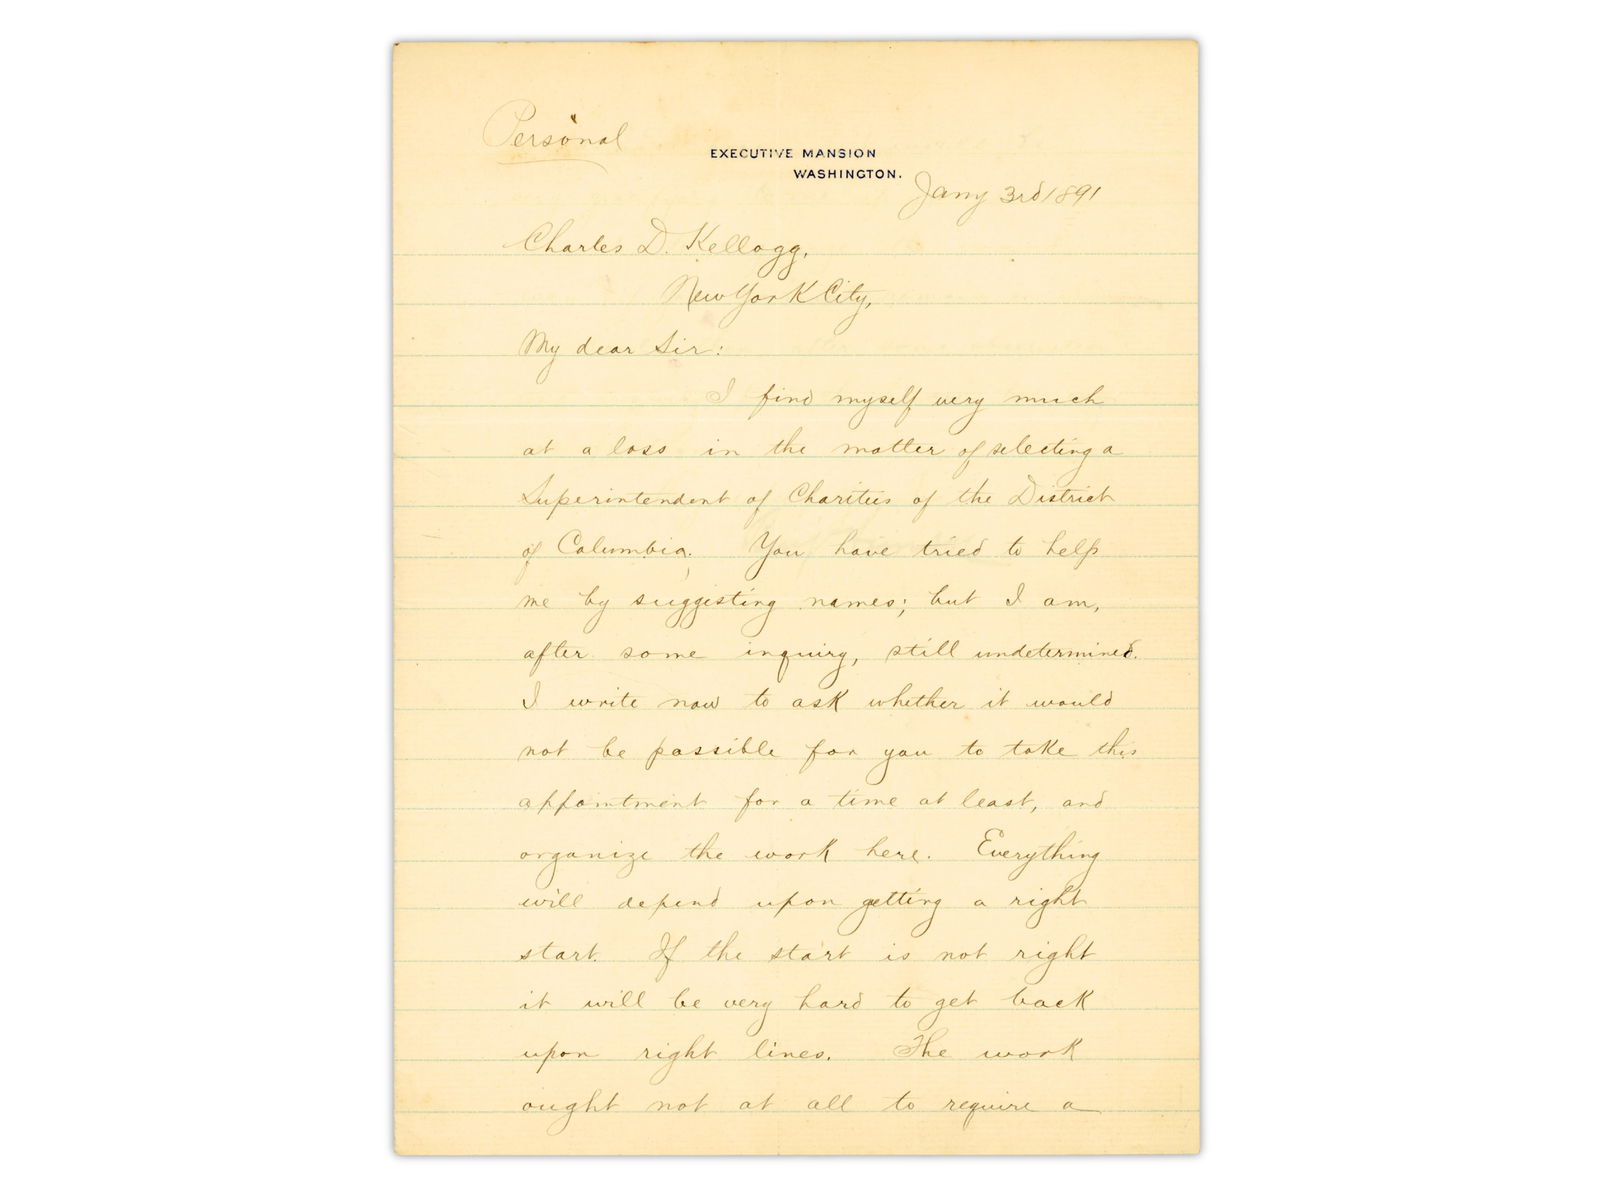 Personal
EXECUTIVE MANSION
WASHINGTON.
Jany 3rd 1891
Charles D. Kellogg,
New York City,
My dear Sir:
I find myself very much
at a loss in the matter of selecting a
Superintendent of Charities of the District
of Columbia. You have tried to help
me by suggesting names; but I am,
after some inquiry, still undetermined.
I write now to ask whether it would
not be possible for you to take this
appointment for a time at least, and
organize the work here. Everything
will depend upon getting a right
start. If the start is not right
it will be very hard to get back
upon right lines. The work
ought not at all to require a